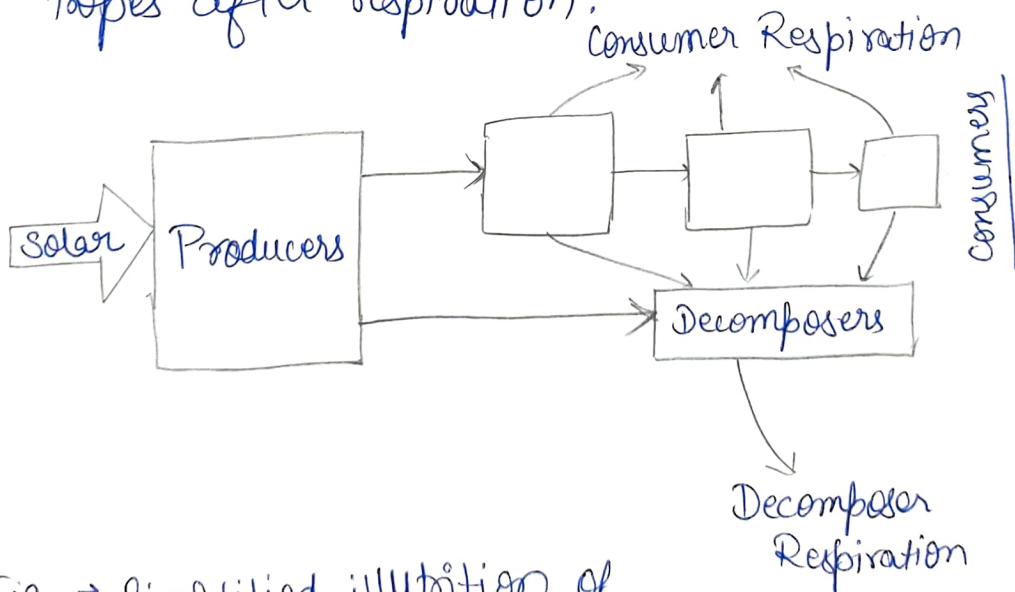 after respiration.
Consumer Respiration
Consumers
Solar
Producers
Decomposers
Decomposer
Respiration
illustrition of